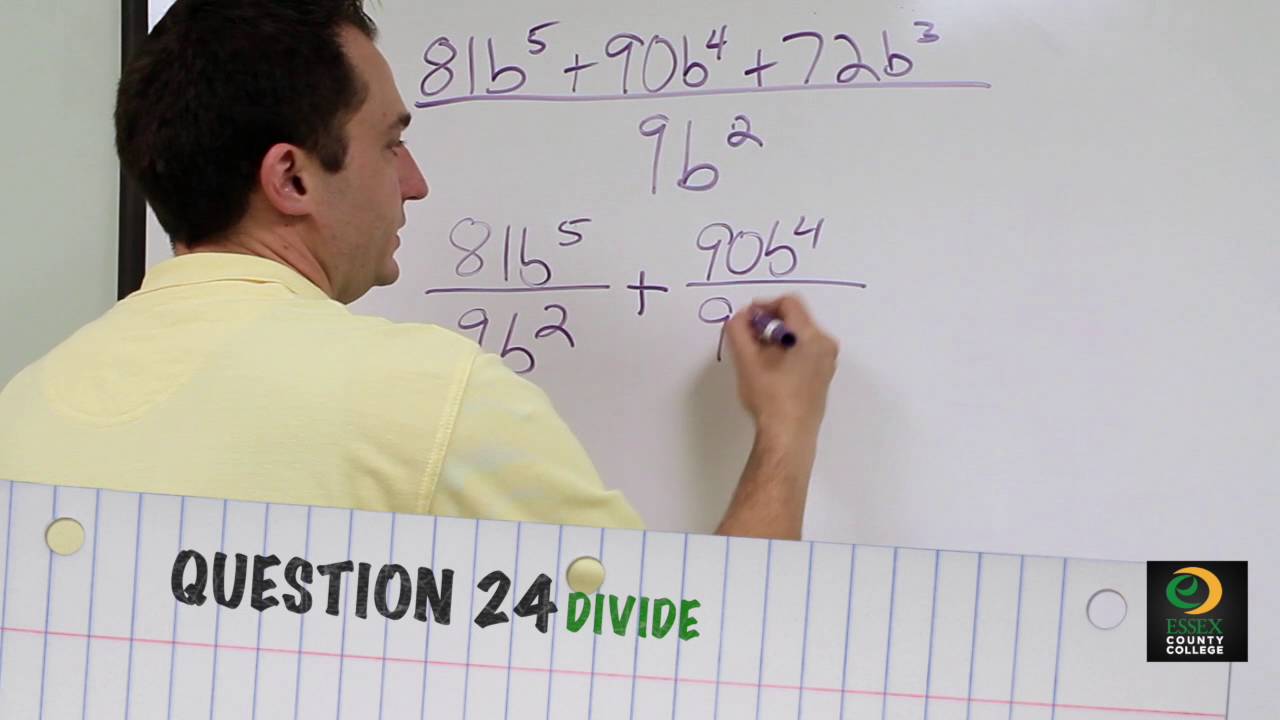 81b⁵ + 90b⁴ + 72b³
9b²
81b⁵ + 90b⁴
9b² 9
QUESTION 24 DIVIDE
ESSEX
COUNTY
COLLEGE